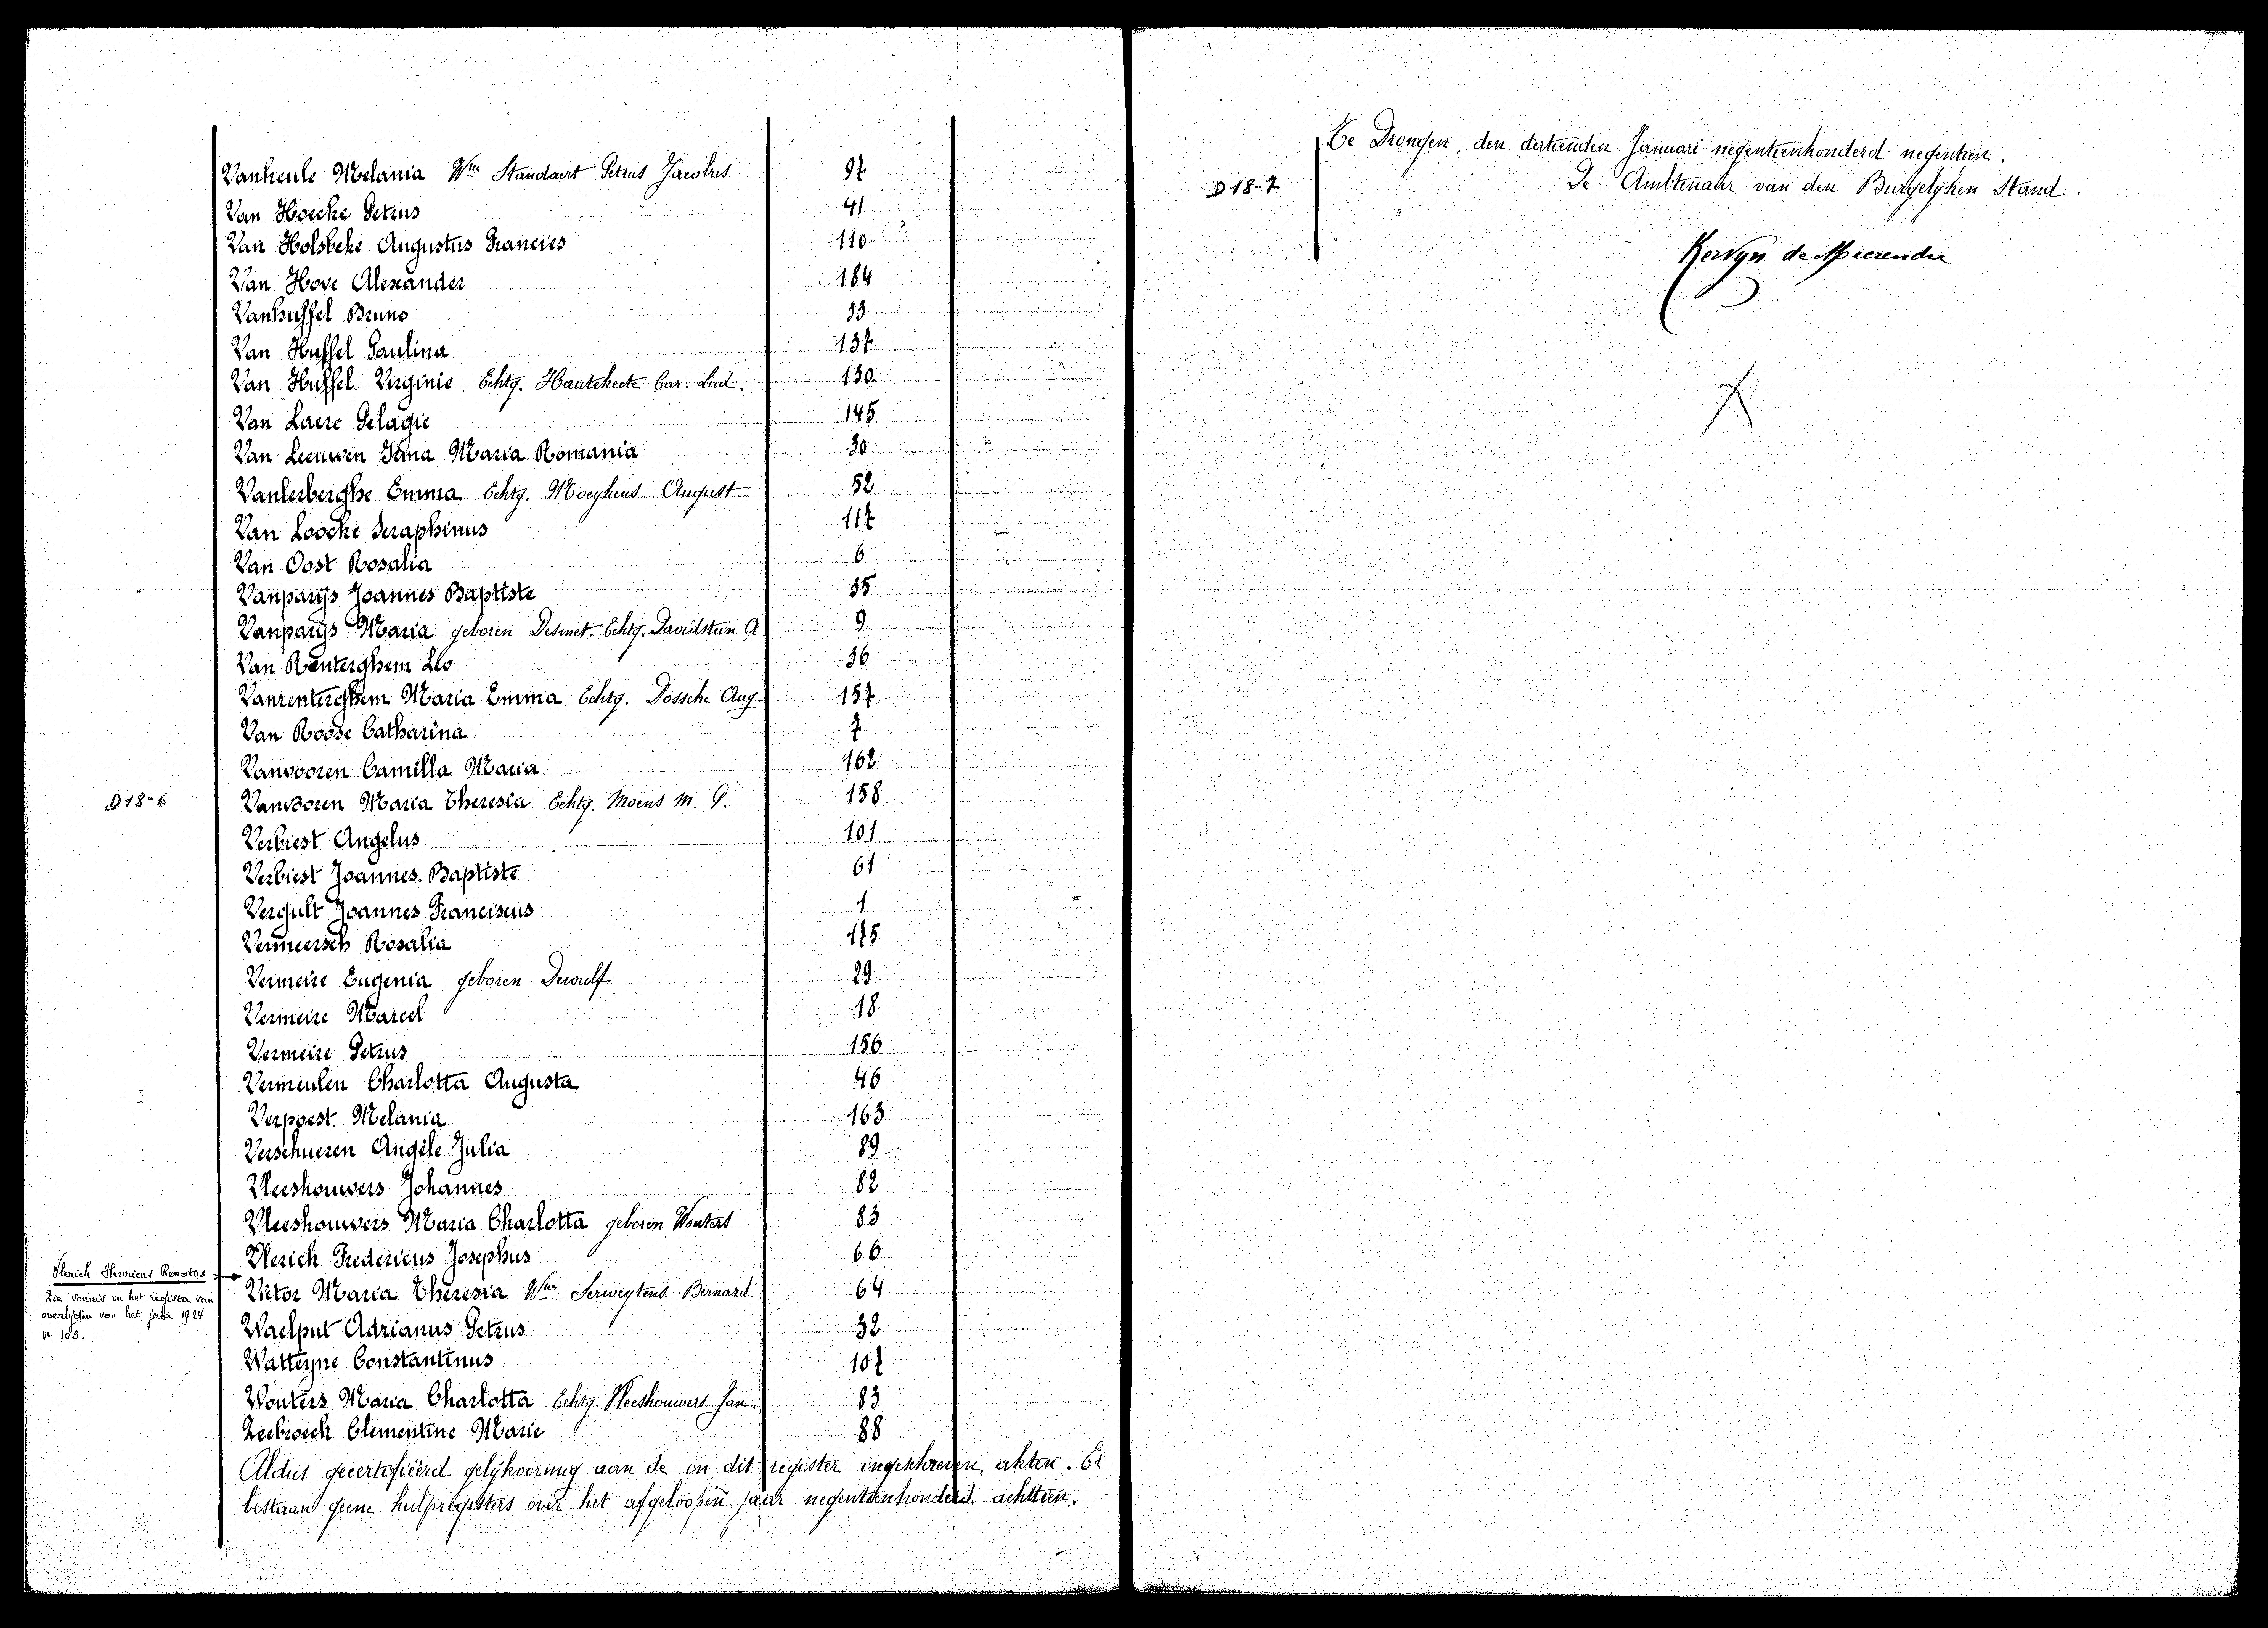 Vanheule Melania Wwe Standaert Petrus Jacobus 97
Van Hoecke Petrus 41
Van Holsbeke Augustus Francies 110
Van Hove Alexander 184
Vanhuffel Bruno 33
Van Huffel Paulina 137
Van Huffel Virginie Echtg. Hautekeete Car. Lud. 130
Van Laere Pelagie 145
Van Leeuwen Irma Maria Romania 30
Vanlerberghe Emma Echtg. Moeykens August 52
Van Loocke Seraphinus 117
Van Oost Rosalia 6
Vanparijs Joannes Baptiste 35
Vanparijs Maria geboren Desmet. Echtg. Davidsteen A 9
Van Renterghem Leo 36
Vanrenterghem Maria Emma Echtg. Dossche Aug 157
Van Roose Catharina 7
Vanvooren Camilla Maria 162
D18-6 Vanvooren Maria Theresia Echtg. Moens M. P. 158
Verbiest Angelus 101
Verbiest Joannes Baptiste 61
Vergult Joannes Franciscus 1
Vermeersch Rosalia 175
Vermeire Eugenia geboren Dewulf 29
Vermeire Marcel 18
Vermeire Petrus 156
Vermeulen Charlotta Augusta 46
Verpoest Melania 163
Verschueren Angèle Julia 89
Vleeshouwers Johannes 82
Vleeshouwers Maria Charlotta geboren Wouters 83
Vlerich Fredericus Josephus 66
Vlerich Henricus Renatus
Zie vonnis in het register van
overlijden van het jaar 1924
nr 103.
Victor Maria Theresia Wwe Serweytens Bernard. 64
Waelput Adrianus Petrus 32
Watteyne Constantinus 107
Wouters Maria Charlotta Echtg. Vleeshouwers Jan. 83
Zeebroeck Clementine Marie 88
Aldus gecertifiëerd gelijkvormig aan de in dit register ingeschreven akten. Er
bestaan geene hulpregisters over het afgeloopen jaar negentienhonderd achttien.
Te Drongen, den dertienden Januari negentienhonderd negentien.
D18-7 De Ambtenaar van den Burgelijken Stand.
Kervyn de Meerendre